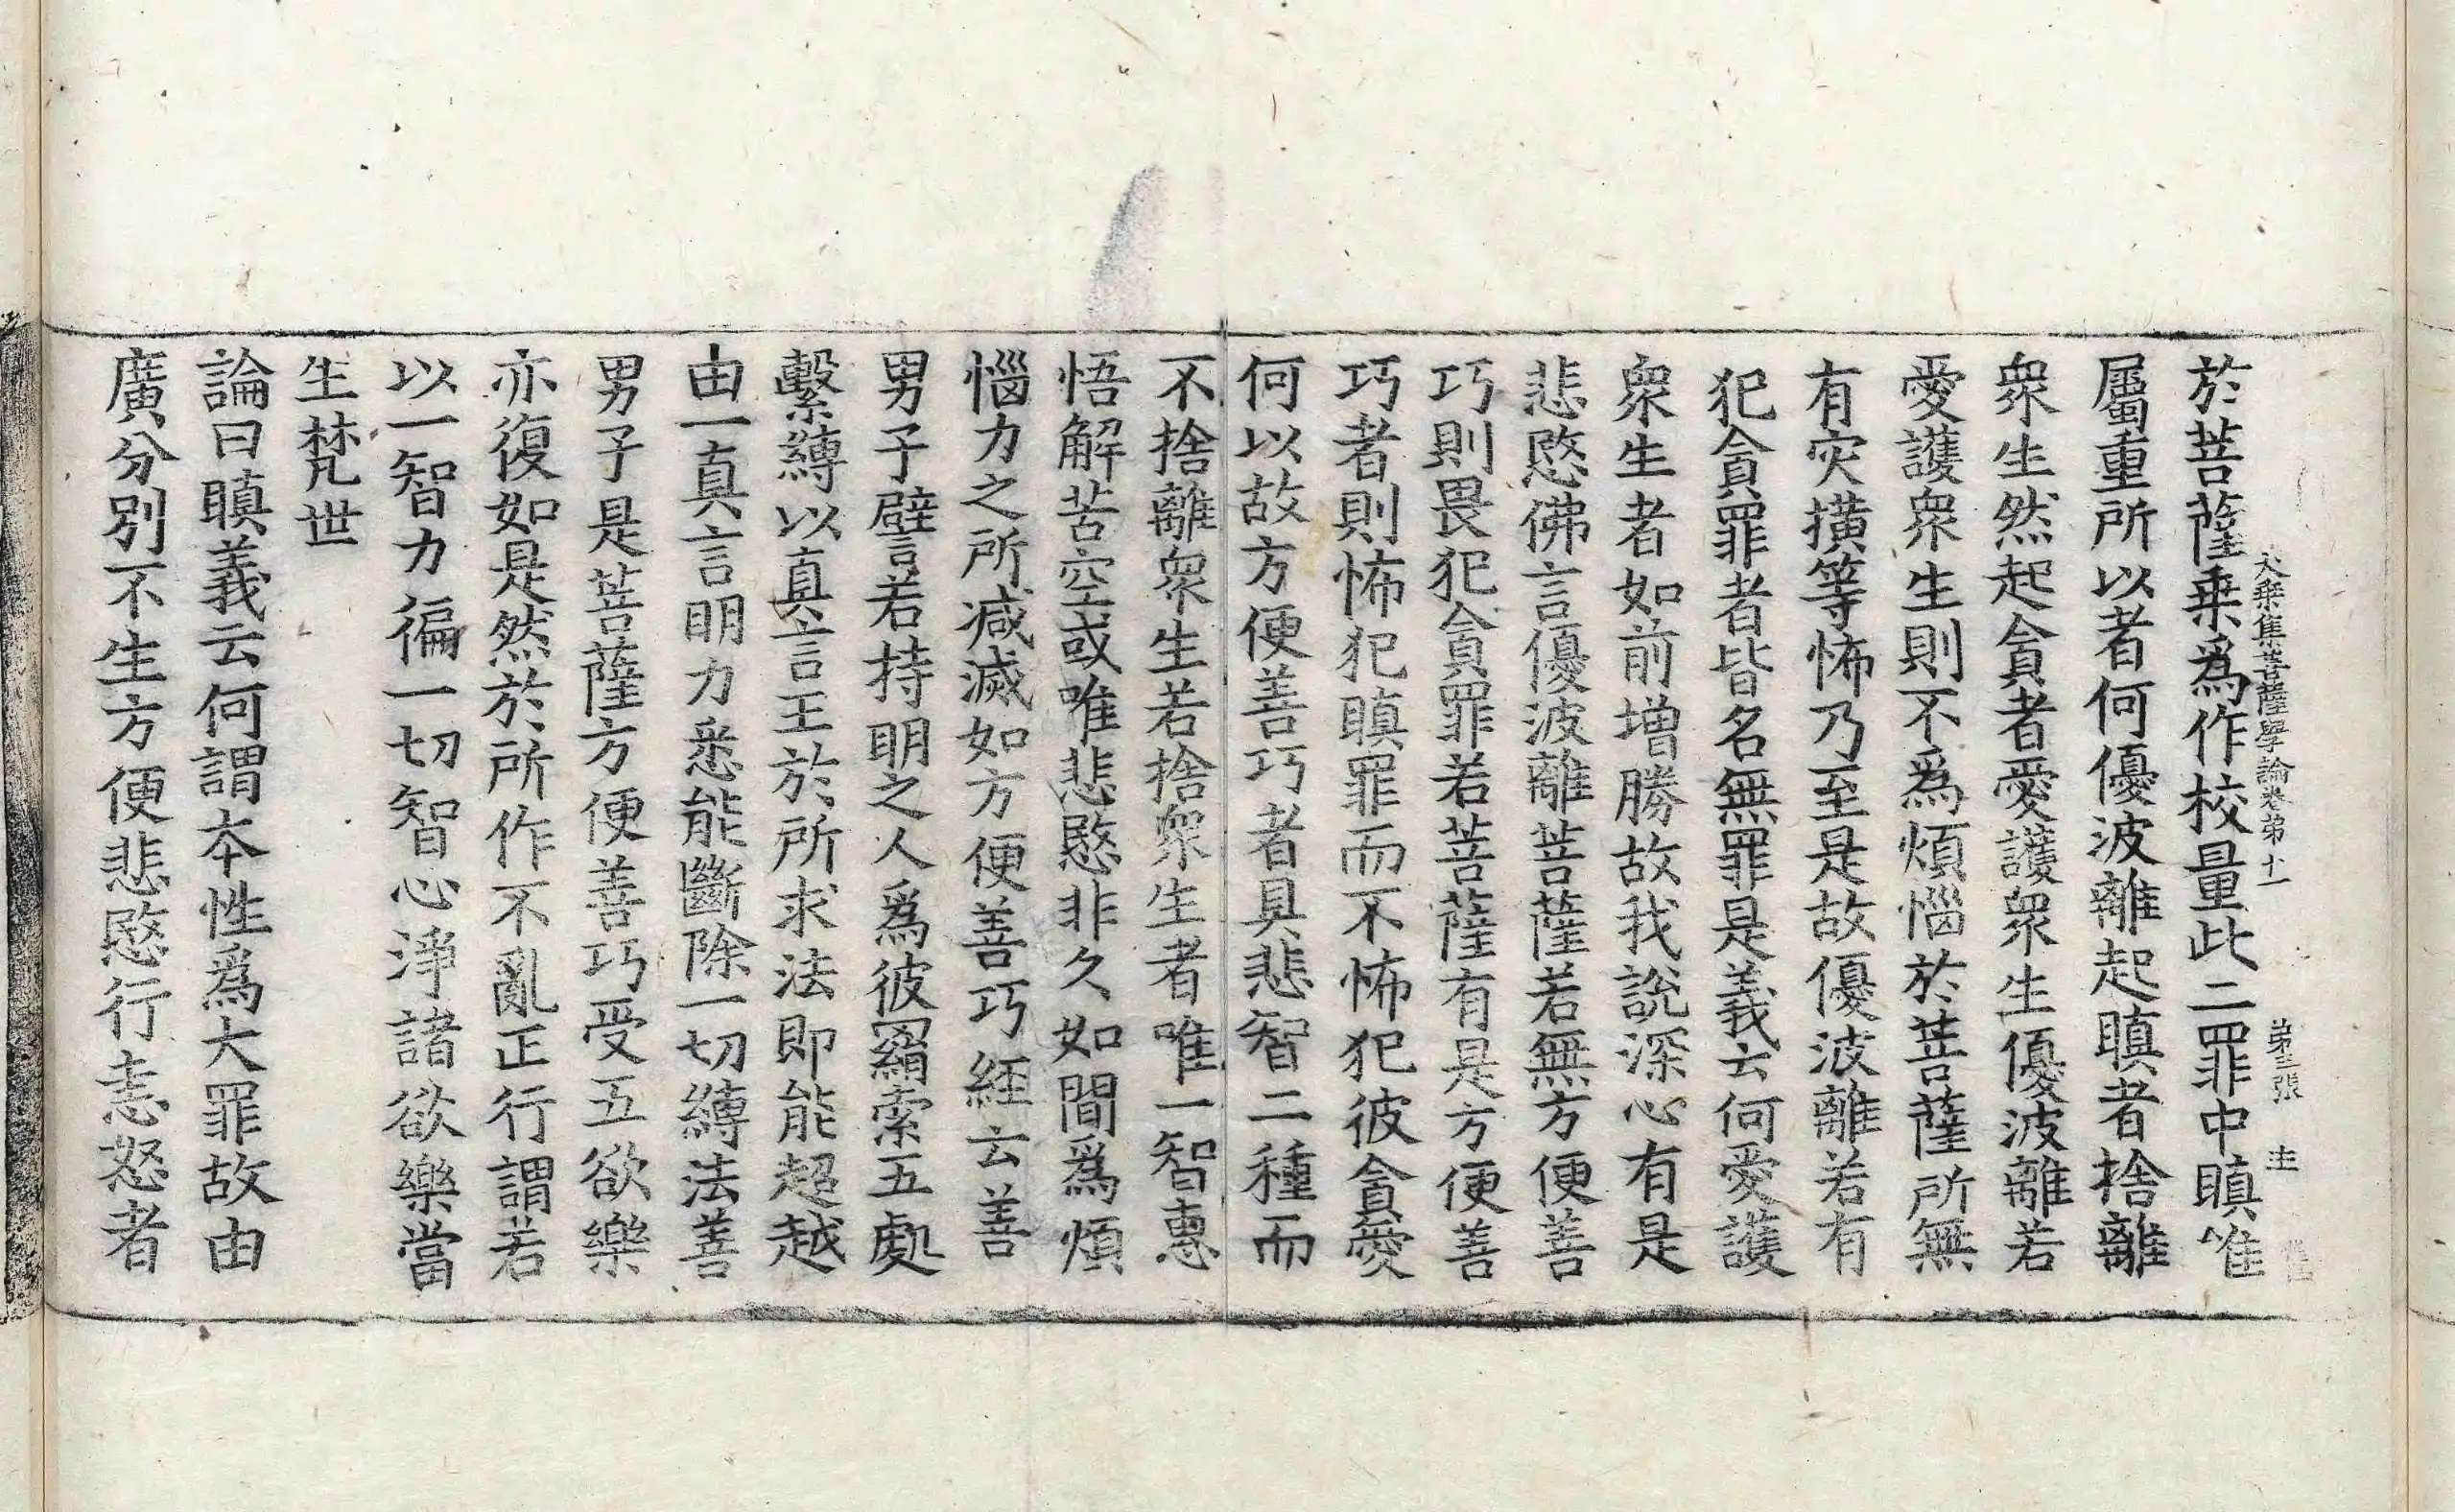 大乘集菩薩學論卷第十一　第三張　主
於菩薩乘爲作校量此二罪中瞋唯
屬重所以者何優波離起瞋者捨離
衆生然起貪者愛護衆生優波離若
愛護衆生則不爲煩惱於菩薩所無
有灾撗等怖乃至是故優波離若有
犯貪罪者皆名無罪是義云何愛護
衆生者如前增勝故我說深心有是
悲愍佛言優波離菩薩若無方便善
巧則畏犯貪罪若菩薩有是方便善
巧者則怖犯瞋罪而不怖犯彼貪愛
何以故方便善巧者具悲智二種而
不捨離衆生若捨衆生者唯一智惠
悟解苦空或唯悲愍非久如閒爲煩
惱力之所減滅如方便善巧經云善
男子譬若持明之人爲彼羂索五處
繫縛以真言王於所求法即能超越
由一真言明力悉能斷除一切縛法善
男子是菩薩方便善巧受五欲樂
亦復如是然於所作不亂正行謂若
以一智力徧一切智心淨諸欲樂當
生梵世
論曰瞋義云何謂本性爲大罪故由
廣分別不生方便悲愍行恚怒者